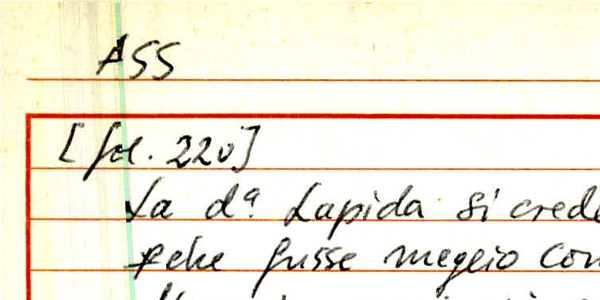 ASS
[fol. 22v]
La dª Lapida si crede
pche fusse meglio con